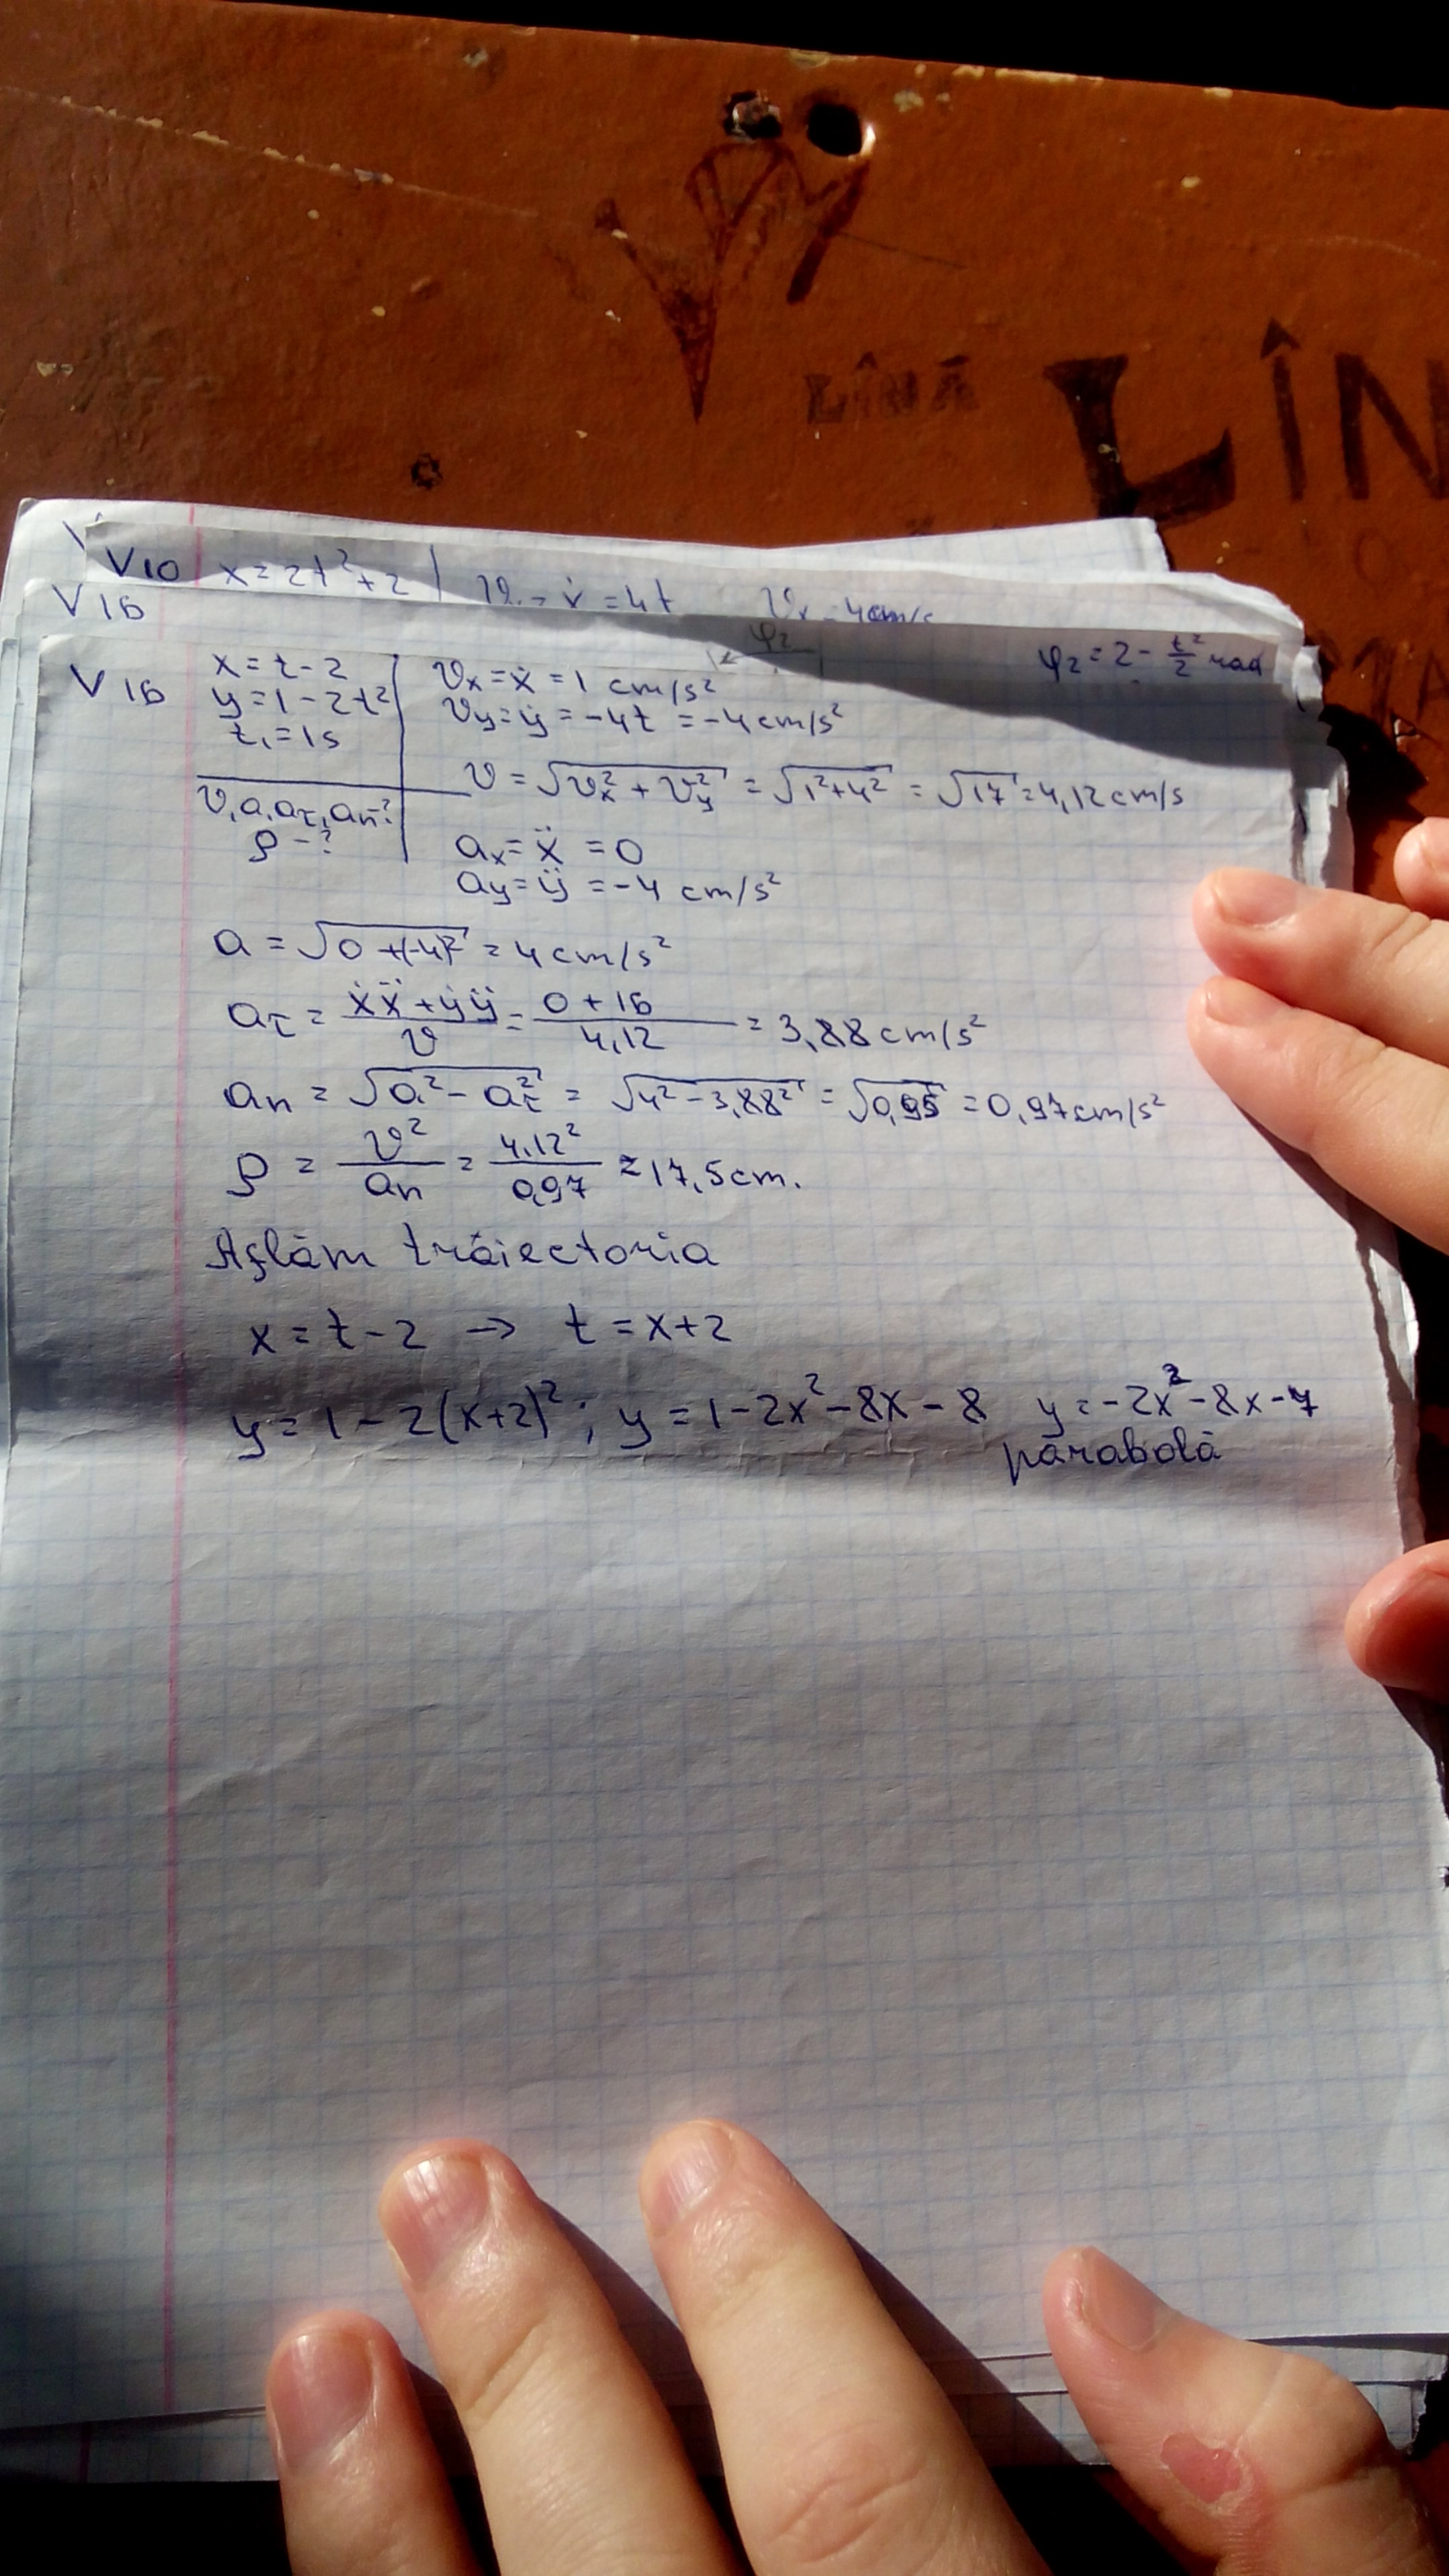 LÎNĂ
LÎN
V10 x=2t²+2 = ẋ = 4t
V16
φ₂
φ₂ = 2 - t²/2 rad
V16
x = t - 2
y = 1 - 2t²
t₁ = 1s
v, a, aτ, an - ?
ρ - ?
vx = ẋ = 1 cm/s²
vy = ẏ = -4t = -4 cm/s²
v = √(vx² + vy²) = √(1² + 4²) = √17 = 4,12 cm/s
ax = ẍ = 0
ay = ÿ = -4 cm/s²
a = √(0 + (-4)²) = 4 cm/s²
aτ = (ẋẍ + ẏÿ)/v = (0 + 16)/4,12 = 3,88 cm/s²
an = √(a² - aτ²) = √(4² - 3,88²) = √0,95 = 0,97 cm/s²
ρ = v²/an = 4,12²/0,97 = 17,5 cm.
Aflăm trăiectoria
x = t - 2 → t = x + 2
y = 1 - 2(x+2)² ; y = 1 - 2x² - 8x - 8 y = -2x² - 8x - 7
parabolă